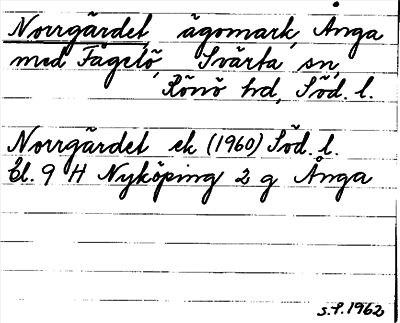 Norrgärdet, ägomark, Ånga
med Fågelö, Svärta sn,
Rönö hd, Söd. l.
Norrgärdet ek (1960) Söd. l.
El. 9 H Nyköping 2 g Ånga
s.f. 1962